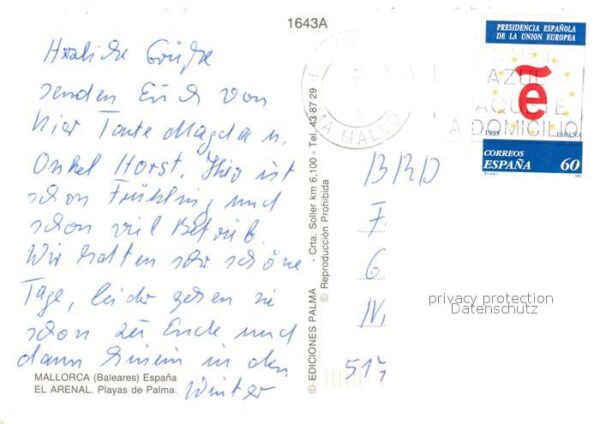 1643A
Herzliche Grüße
senden Euch von
hier Tante Magda u.
Onkel Horst. Hier ist
schon Frühling und
schon viel Betrieb.
Wir hatten sehr schöne
Tage, leider gehen sie
schon zu Ende und
dann hinein in den
Winter
MALLORCA (Baleares) España
EL ARENAL. Playas de Palma.
© EDICIONES PALMA - Crta. Soller km 6,100 - Tel. 43 87 29
© Reproducción Prohibida
MALLO
AZUL
PAQUETE
A DOMICILIO
PRESIDENCIA ESPAÑOLA
DE LA UNION EUROPEA
e
1995 ESPAÑA
CORREOS
ESPAÑA 60
BRD
F
G
W
517
privacy protection
Datenschutz